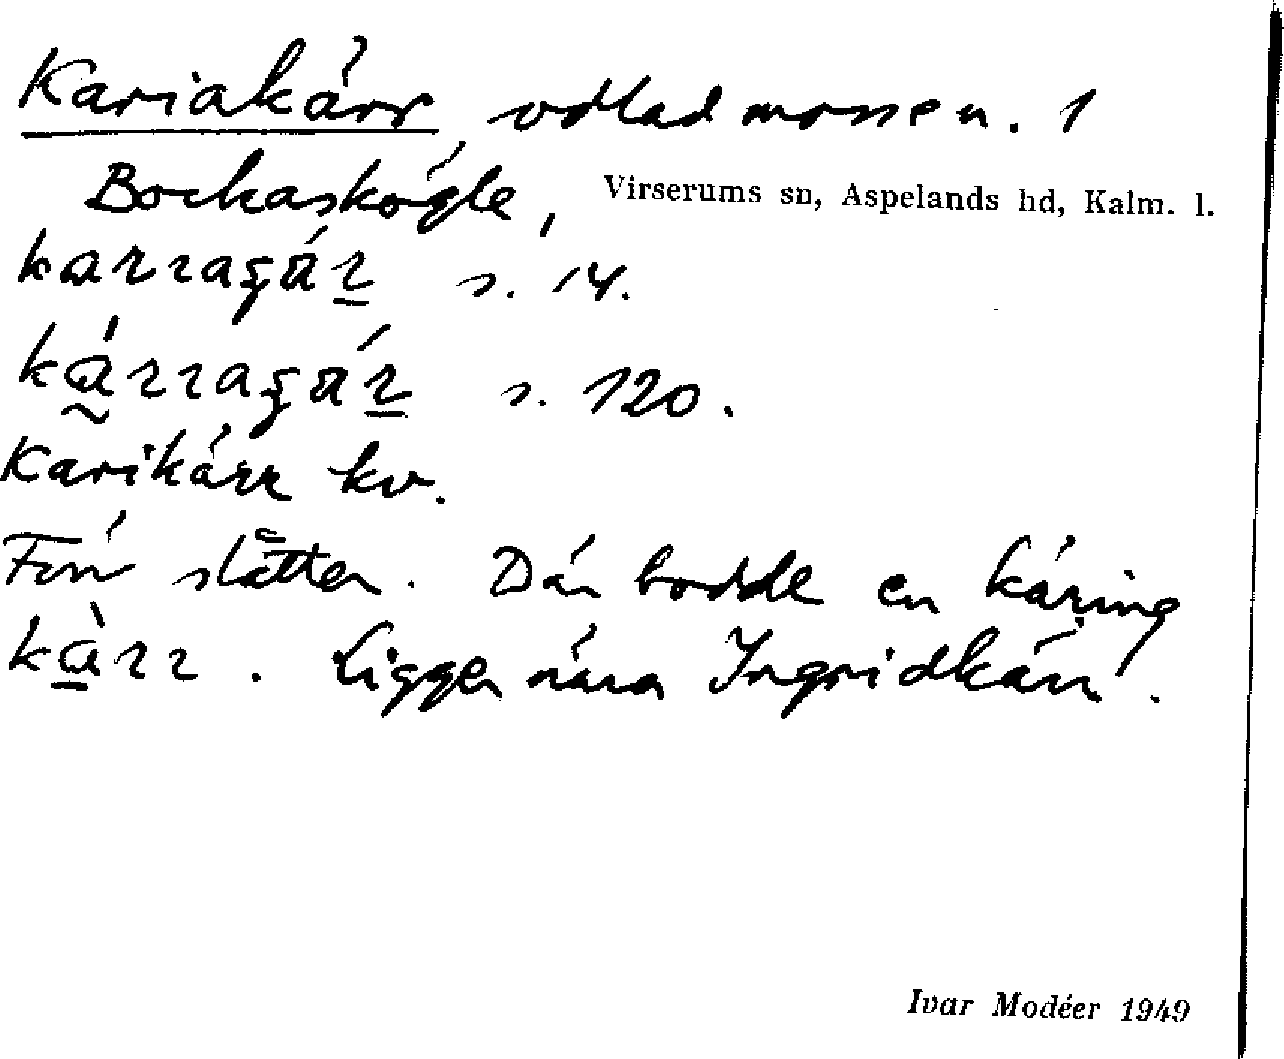 Kariakärr, odlad mosse n. 1
Bockaskögle,
Virserums sn, Aspelands hd, Kalm. l.
s. 14.
s. 120.
Karikärr kv.
Förr slåtter. Där bodde en käring
kärr. Ligger nära Ingridkärr.
Ivar Modéer 1949